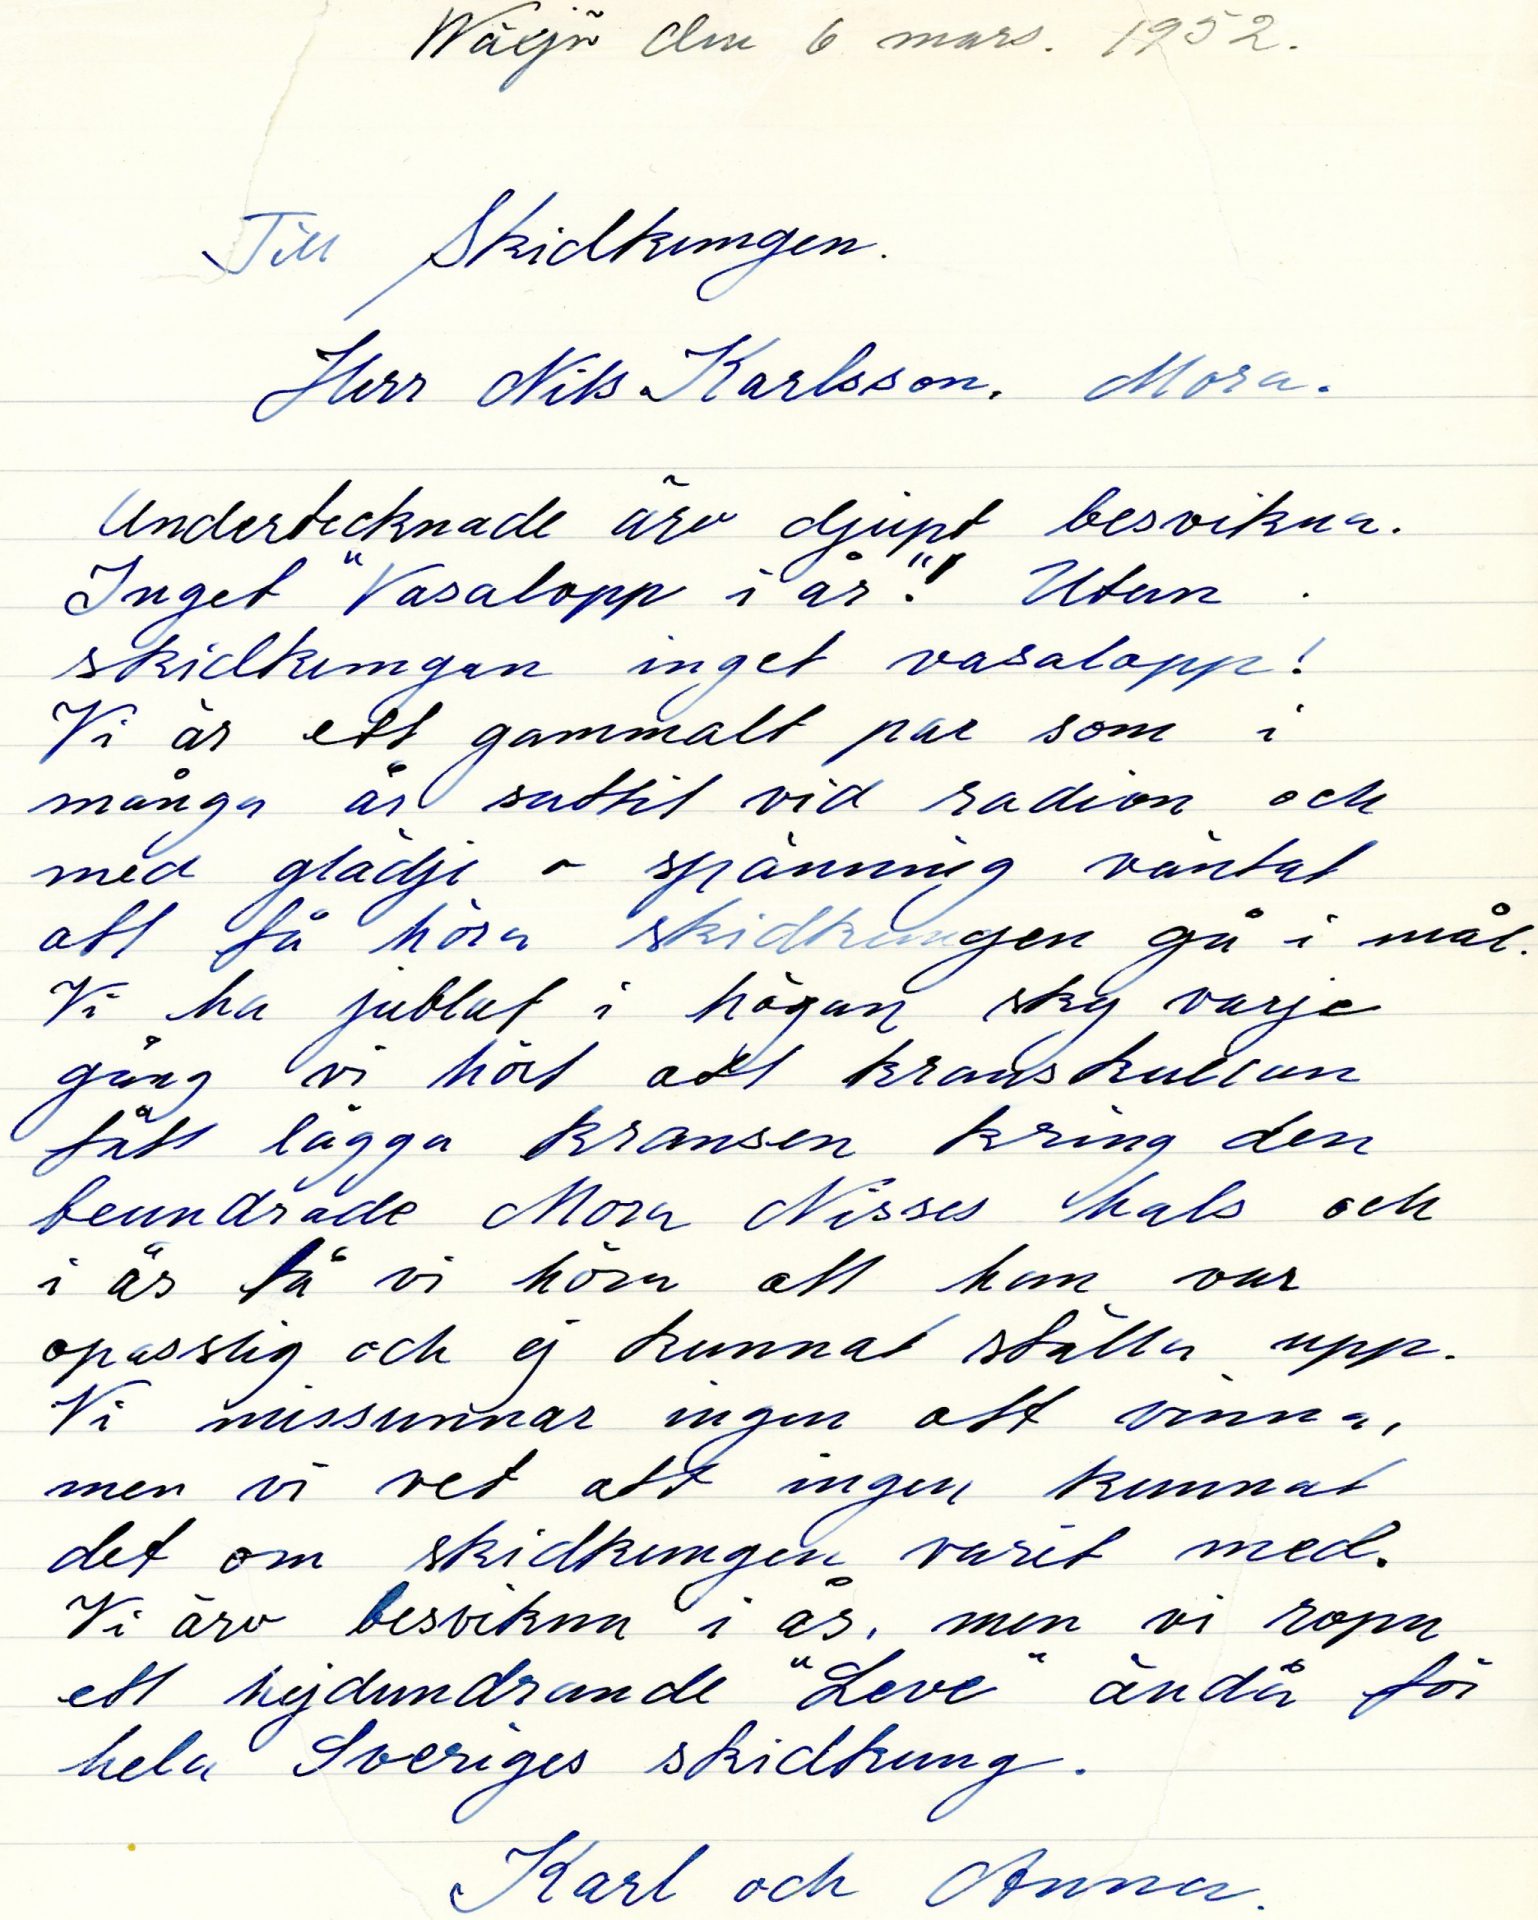 Wäxjö den 6 mars. 1952.
Till Skidkungen.
Herr Nils Karlsson. Mora.
Undertecknade äro djupt besvikna.
Inget "Vasalopp i år"! Utan
skidkungen inget vasalopp!
Vi är ett gammalt par som i
många år suttit vid radion och
med glädje o spänning väntat
att få höra skidkungen gå i mål.
Vi ha jublat i högan sky varje
gång vi hört att kranskullan
fått lägga kransen kring den
beundrade Mora Nisses hals och
i år få vi höra att han var
opasslig och ej kunnat ställa upp.
Vi missunnar ingen att vinna,
men vi vet att ingen kunnat
det om skidkungen varit med.
Vi äro besvikna i år, men vi ropa
ett hejdundrande "Leve" ändå för
hela Sveriges skidkung.
Karl och Anna.